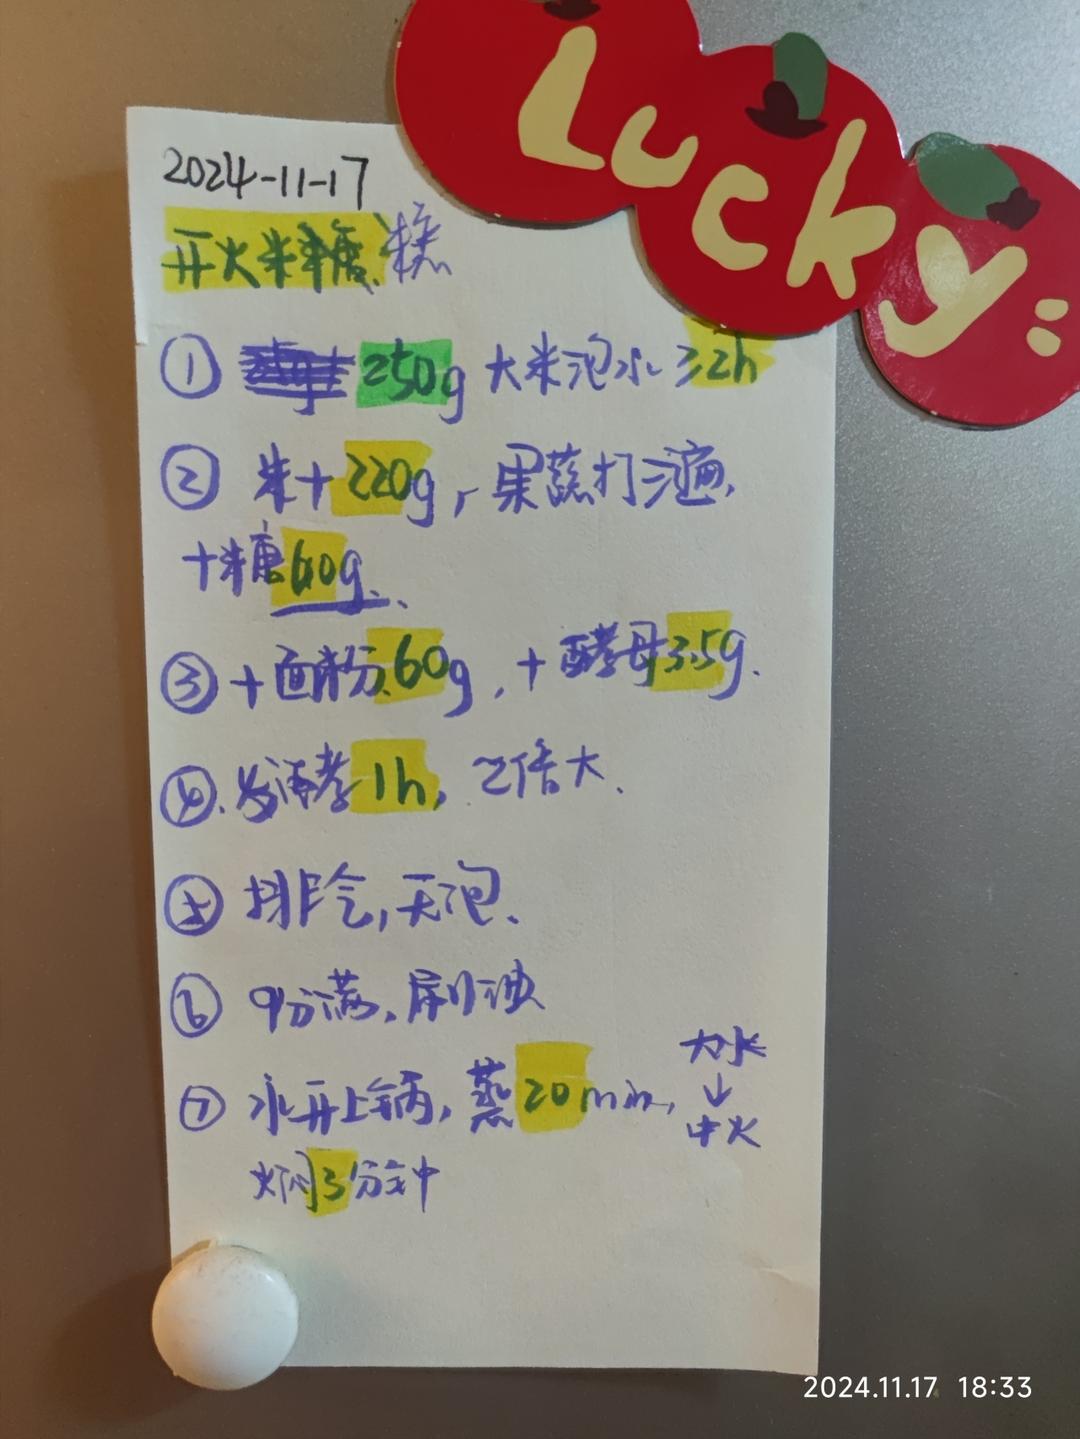 Lucky
2024-11-17
开火米糕
① 250g 大米泡水 ≥2h
② 米+220g, 果蔬打3遍,
+糖60g.
③ +面粉60g, +酵母3.5g.
④. 发酵1h, 2倍大.
⑤ 排气, 无泡.
⑥ 9分满, 刷油
⑦ 水开上锅, 蒸20min,
大火
↓
中火
焖3分钟
2024.11.17 18:33